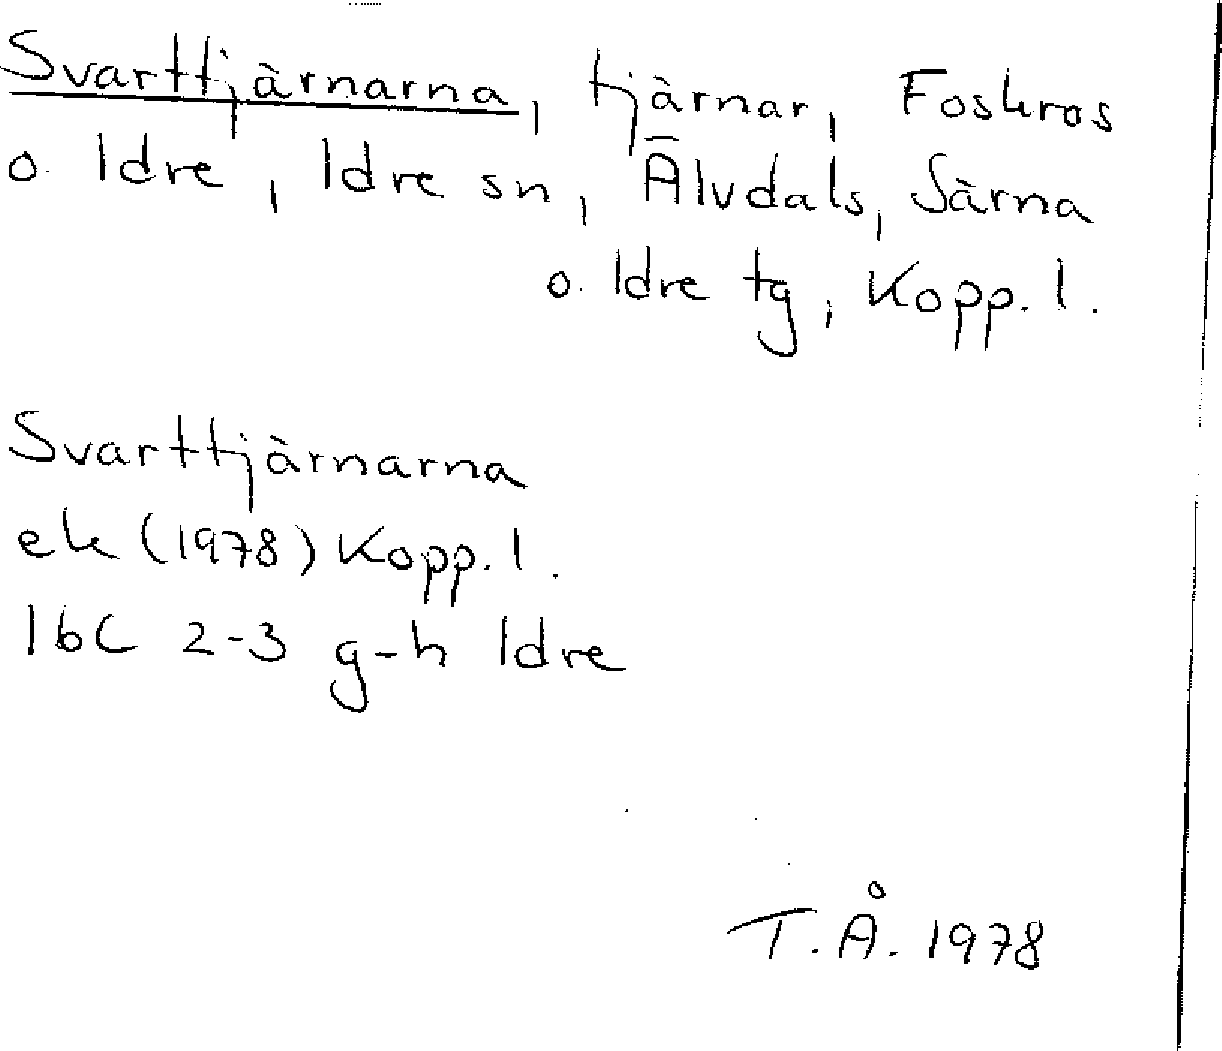 Svarttjärnarna, tjärnar, Foskros
o. Idre, Idre sn, Älvdals, Särna
o. Idre tg, Kopp. l.
Svarttjärnarna
ek (1978) Kopp. l.
16C 2-3 g-h Idre
T.Å. 1978